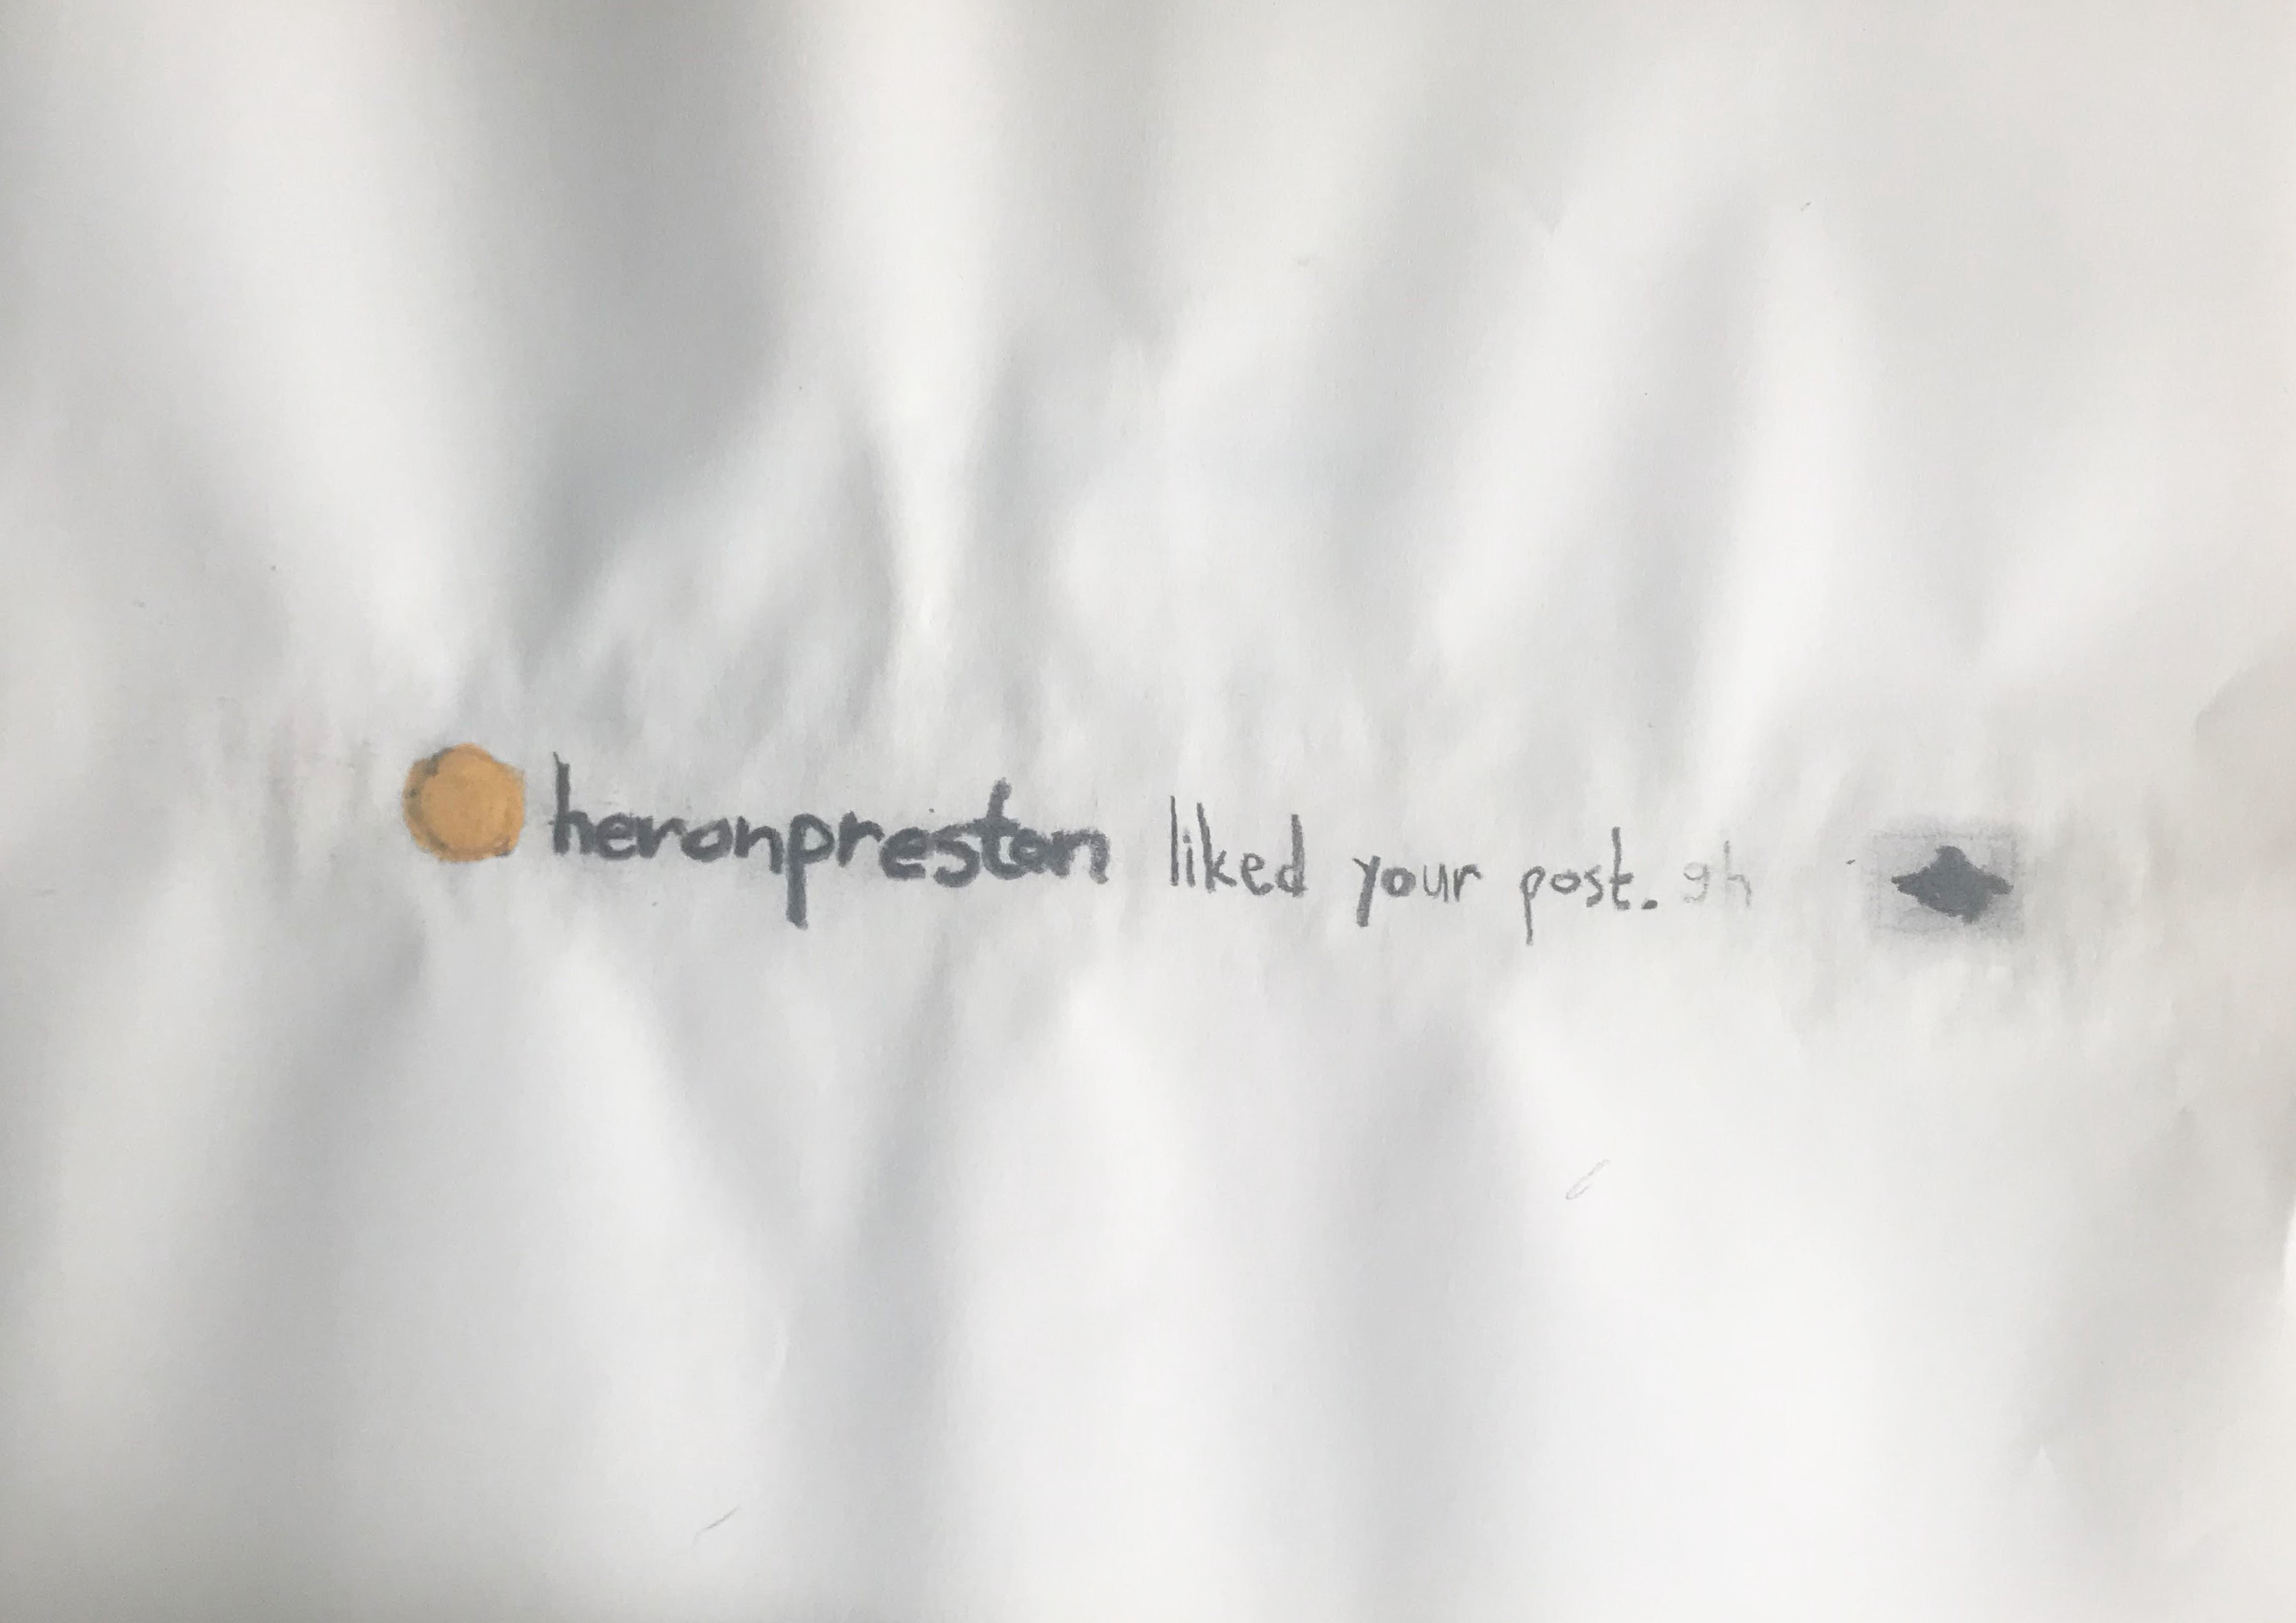 heronpreston liked your post. 9h